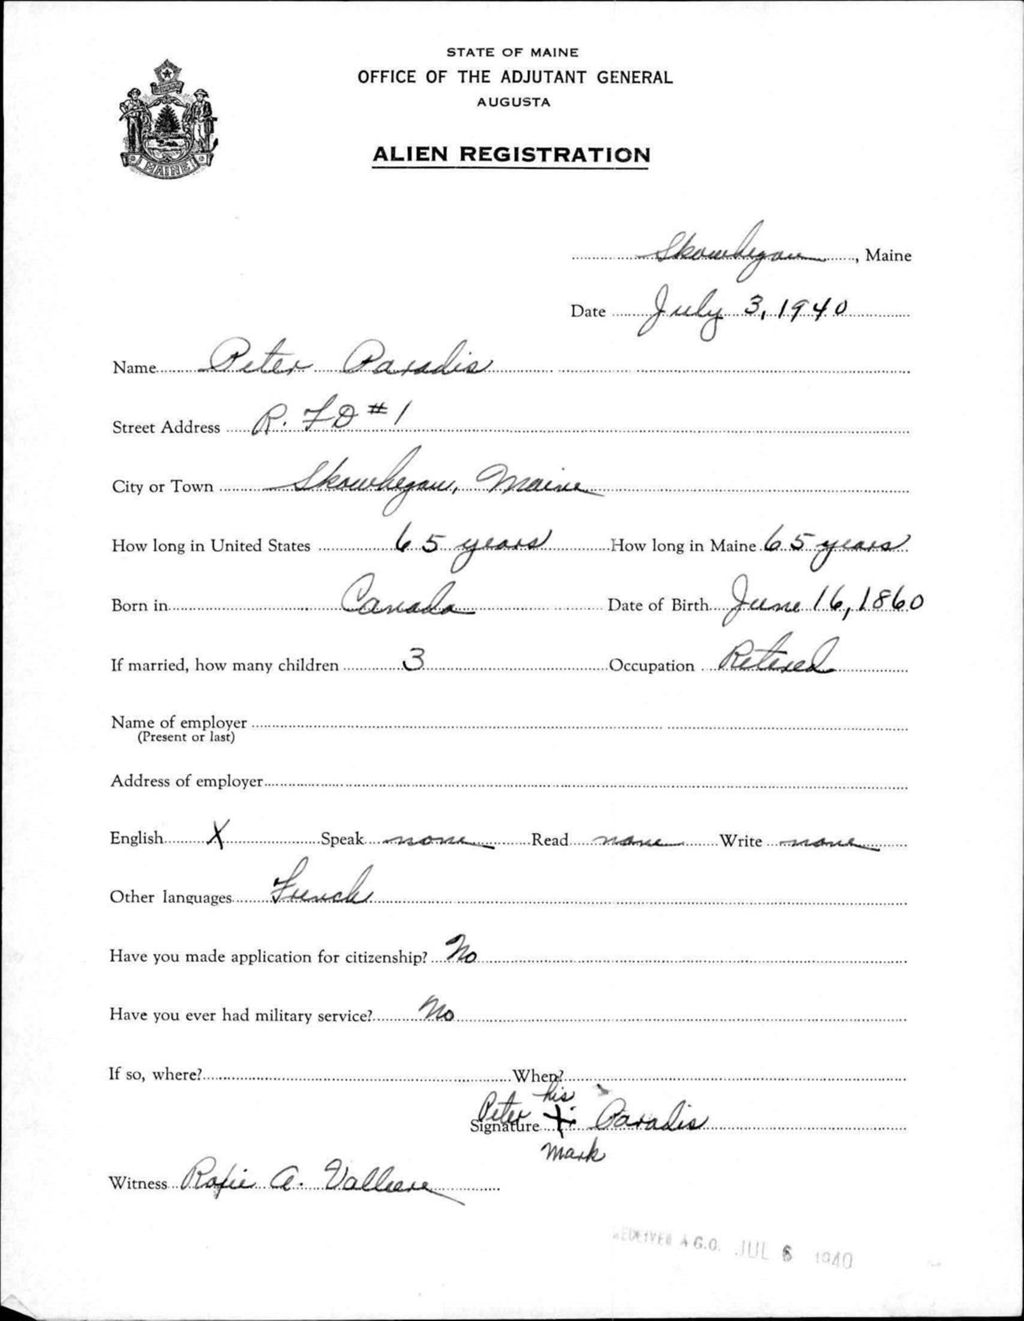 STATE OF MAINE
OFFICE OF THE ADJUTANT GENERAL
AUGUSTA
ALIEN REGISTRATION
MAINE
Skowhegan, Maine
Date July 3, 1940
Name Peter Paradis
Street Address R. F D # 1
City or Town Skowhegan, Maine
How long in United States 65 years How long in Maine 65 years
Born in Canada Date of Birth June 16, 1860
If married, how many children 3 Occupation Retired
Name of employer
(Present or last)
Address of employer
English X Speak none Read none Write none
Other languages French
Have you made application for citizenship? No
Have you ever had military service? No
If so, where? When?
his
Signature Peter X Paradis
mark
Witness A. Valliere
RECEIVED A.G.O. JUL 6 1940